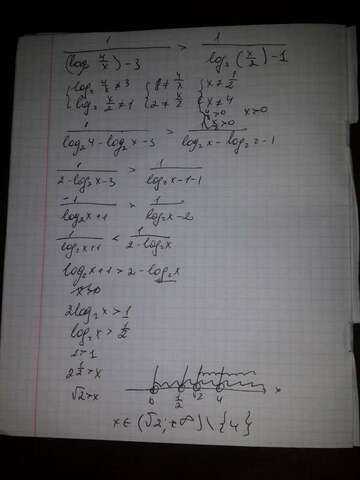 1/(log₂(4/x)-3) > 1/(log₂(x/2)-1)
{log₂ 4/x ≠ 3 {8 ≠ 4/x {x ≠ 1/2
{log₂ x/2 ≠ 1 {2 ≠ x/2 {x ≠ 4
4/x > 0 x > 0
x/2 > 0
1/(log₂4 - log₂x - 3) > 1/(log₂x - log₂2 - 1)
1/(2 - log₂x - 3) > 1/(log₂x - 1 - 1)
-1/(log₂x + 1) > 1/(log₂x - 2)
1/(log₂x + 1) < 1/(2 - log₂x)
log₂x + 1 > 2 - log₂x
x > 0
2log₂x > 1
log₂x > 1/2
2 > 1
2^(1/2) > x
√2 > x
0 1/2 √2 4 x
x ∈ (√2; +∞) \ {4}